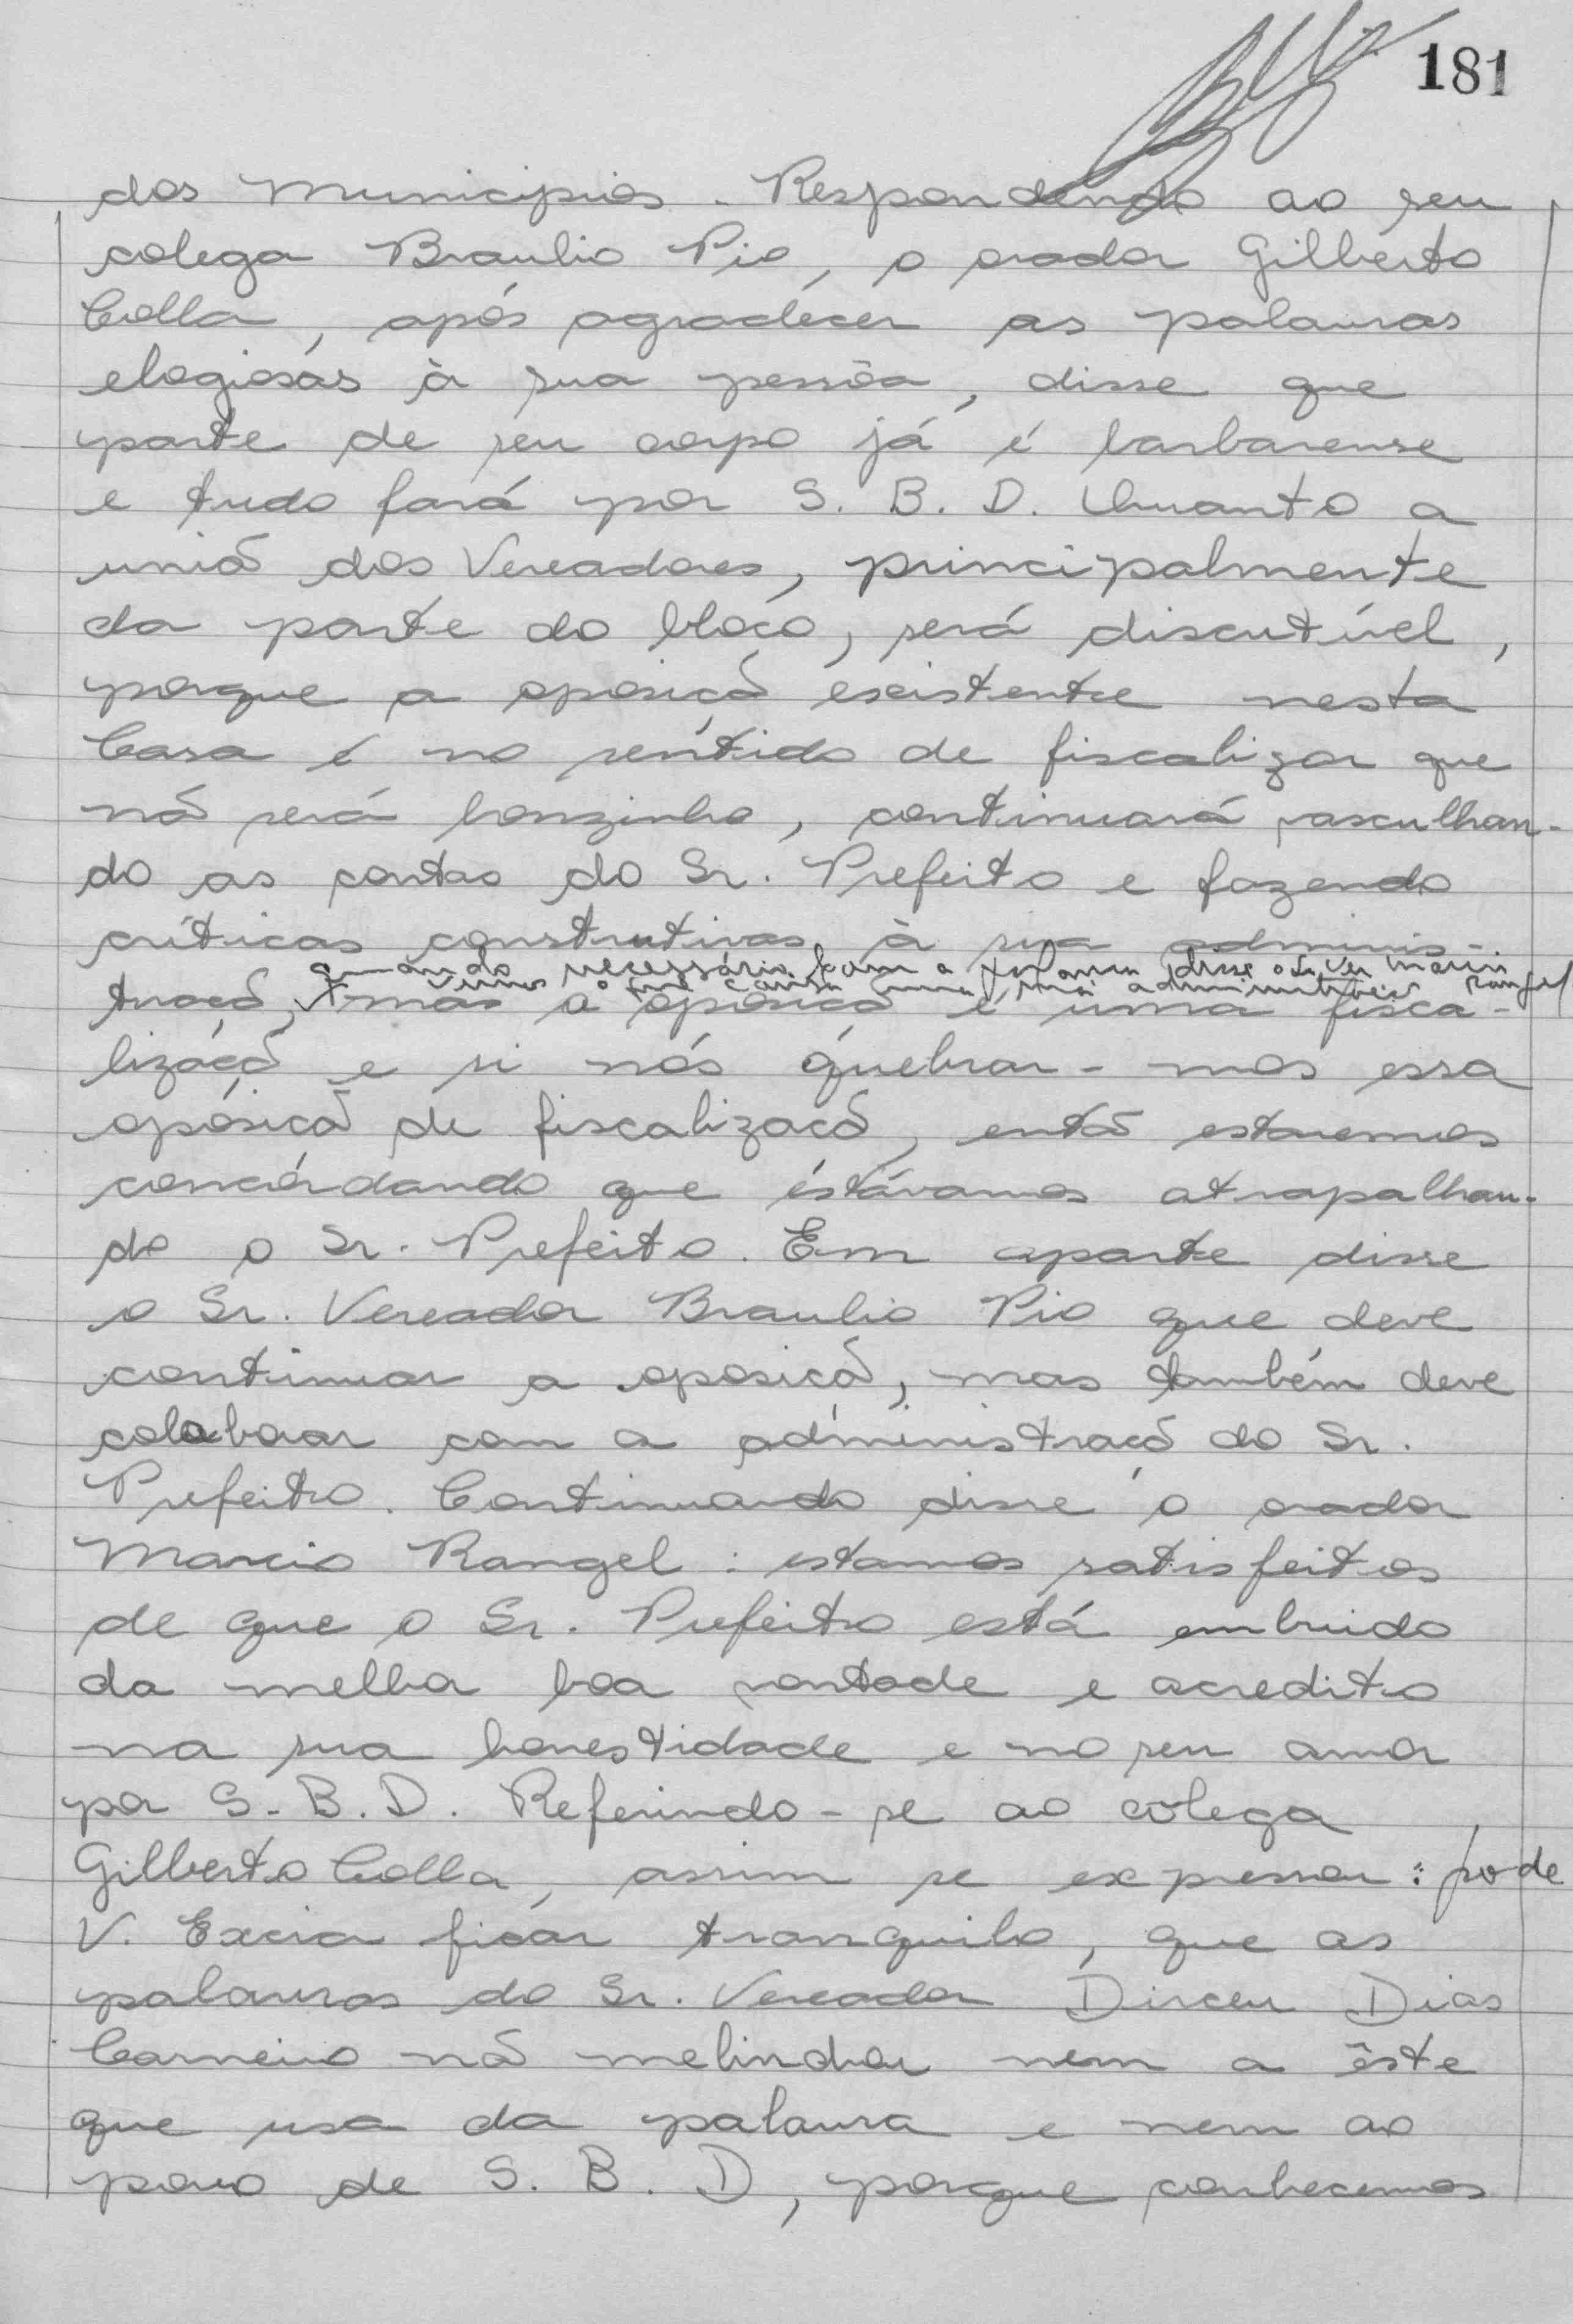 181
dos Municipios. Respondendo ao seu
colega Braulio Pio, o orador Gilberto
Colla, após agradecer as palavras
elogiosas à sua pessôa, disse que
parte de seu corpo já é barbarense
e tudo fará por S. B. D. Quanto a
uniã dos Vereadores, principalmente
da parte do bloco, será discutível,
porque a oposiçã existente nesta
Casa é no sentido de fiscalizar que
nã será bonzinho, continuará vasculhan-
do as contas do Sr. Prefeito e fazendo
críticas construtivas, à sua adminis-
quando necessário. Com a palavra disse o Sr. Ver Marcio
vemos o que causa uma má administração Rangel
traçã, mas a oposiçã é uma fisca-
lizaçã e si nós quebrar-mos essa
oposiçã de fiscalizaçã, entã estaremos
concordando que estávamos atrapalhan-
do o Sr. Prefeito. Em aparte disse
o Sr. Vereador Braulio Pio que deve
continuar a oposiçã, mas também deve
colaborar com a administraçã do Sr.
Prefeito. Continuando disse o orador
Marcio Rangel: estamos satisfeitos
de que o Sr. Prefeito está embuido
da melhor boa vontade e acredito
na sua honestidade e no seu amor
por S. B. D. Referindo-se ao colega
Gilberto Colla, assim se expressou: pode
V. Excia ficar tranquilo, que as
palavras do Sr. Vereador Dirceu Dias
Carneiro nã melindrou nem a êste
que usa da palavra e nem ao
povo de S. B. D, porque conhecemos